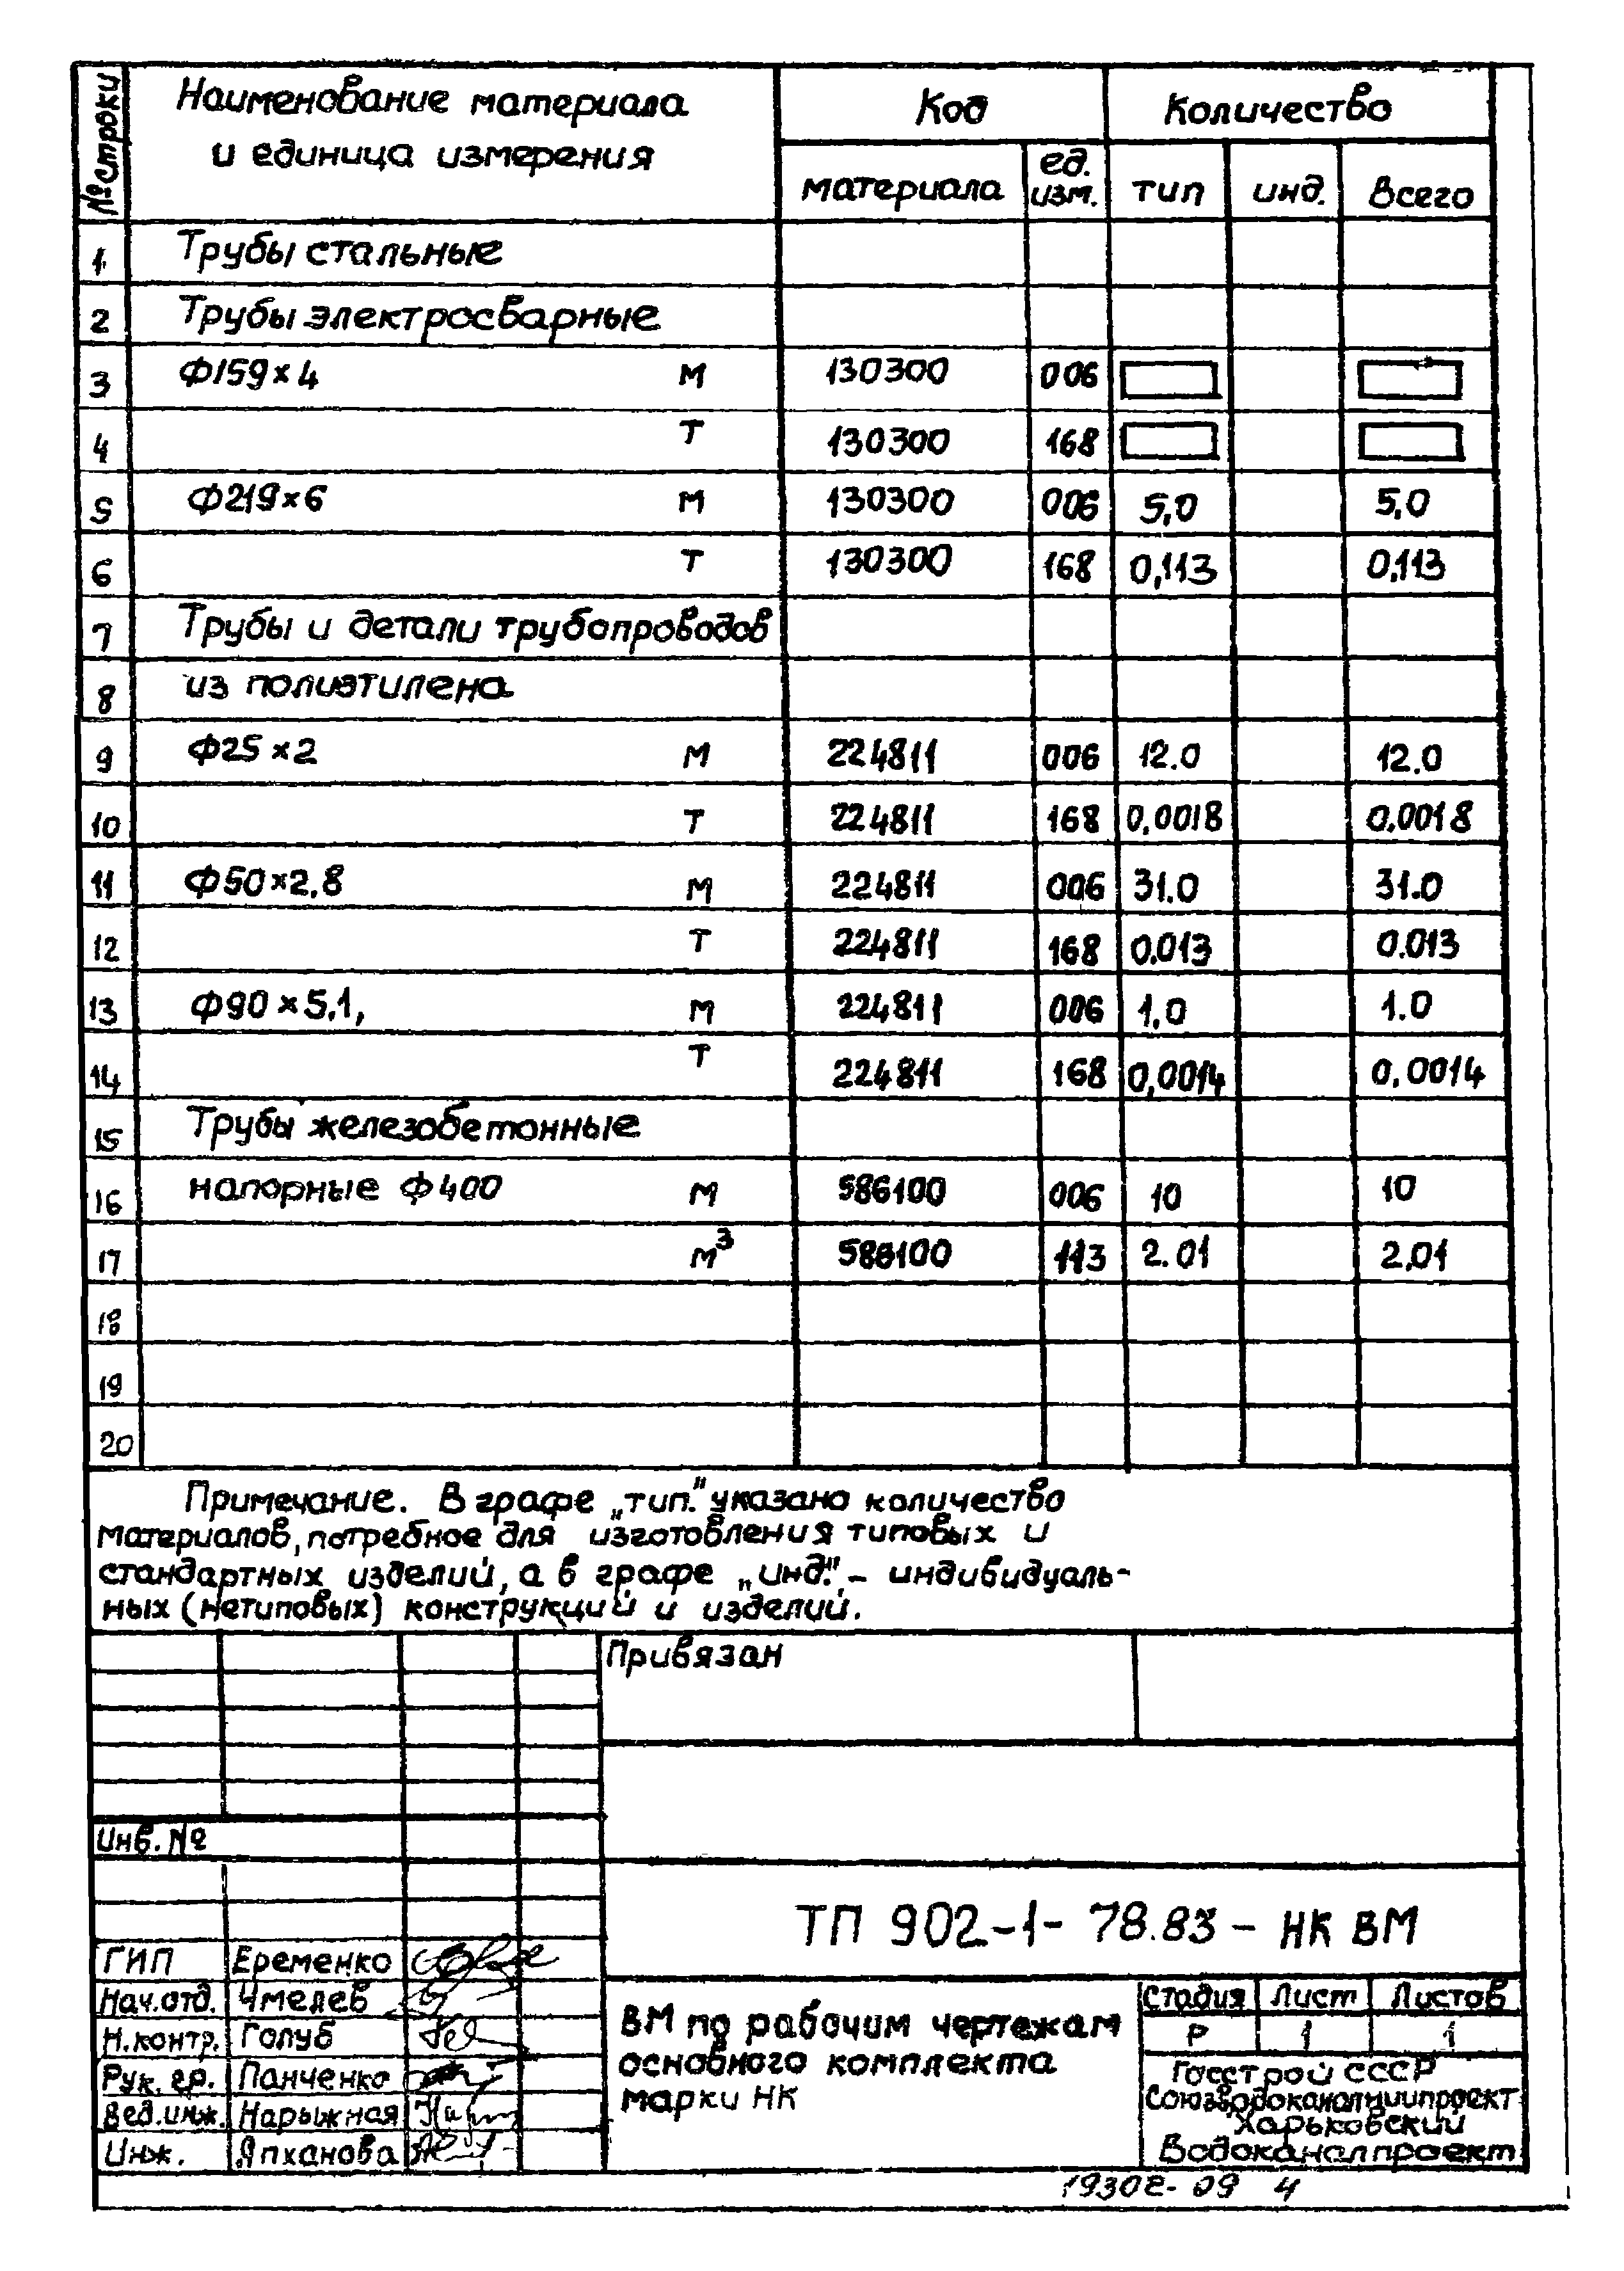 № строки Наименование материала и единица измерения Код Количество
материала ед. изм. тип инд. Всего
1 Трубы стальные
2 Трубы электросварные
3 Ф159×4 М 130300 006
4 Т 130300 168
5 Ф219×6 М 130300 006 5,0 5,0
6 Т 130300 168 0,113 0,113
7 Трубы и детали трубопроводов
8 из полиэтилена
9 Ф25×2 М 224811 006 12.0 12.0
10 Т 224811 168 0,0018 0.0018
11 Ф50×2,8 М 224811 006 31.0 31.0
12 Т 224811 168 0.013 0.013
13 Ф90×5,1, М 224811 006 1,0 1.0
14 Т 224811 168 0,0014 0,0014
15 Трубы железобетонные
16 напорные Ф400 М 586100 006 10 10
17 м³ 586100 113 2.01 2,01
18
19
20
Примечание. В графе „тип." указано количество
материалов, потребное для изготовления типовых и
стандартных изделий, а в графе „инд." – индивидуаль-
ных (нетиповых) конструкций и изделий.
Привязан
Инв. №
ТП 902-1-78.83 – НК ВМ
ГИП Еременко
Нач.отд. Чмелев
Н.контр. Голуб
Рук. гр. Панченко
Вед.инж. Нарыжная
Инж. Япханова
ВМ по рабочим чертежам
основного комплекта
марки НК
Стадия Лист Листов
Р 1 1
Госстрой СССР
Союзводоканалниипроект
Харьковский
Водоканалпроект
19302-09 4